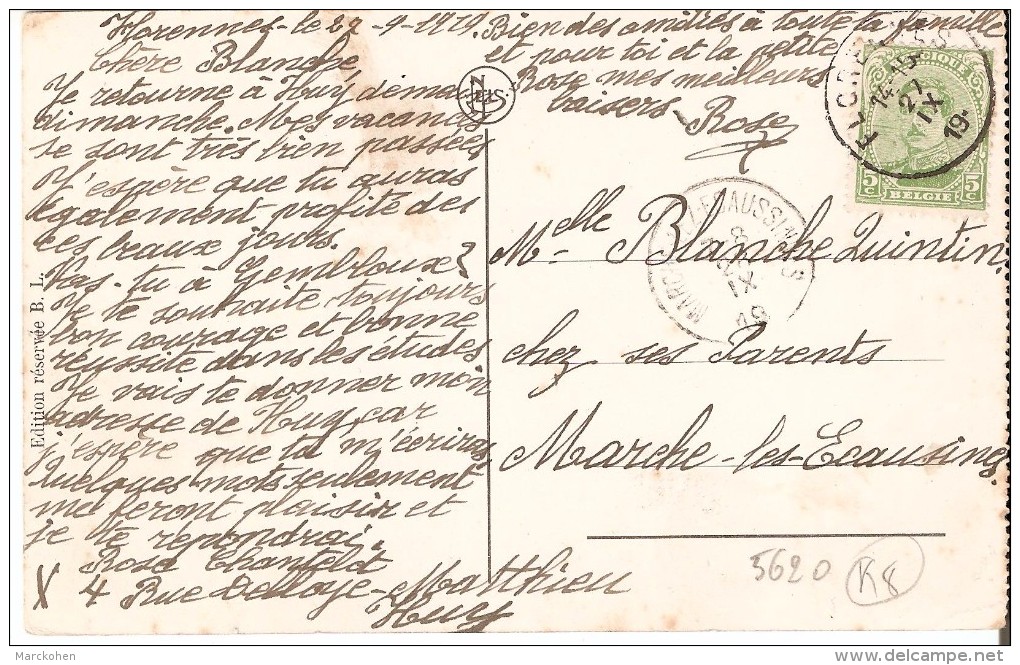 Florennes-le 27-9-1919.
Chère Blanche
Je retourne à Huy demain
dimanche. Mes vacances
se sont très bien passées
J'espère que tu auras
également profité des
ces beaux jours.
Vas-tu à Gembloux?
Je te souhaite toujours
bon courage et bonne
réussite dans les études
Je vais te donner mon
adresse de Huy, car
j'espère que tu m'écriras
Quelques mots seulement
me feront plaisir et
je te répondrai.
Rose
X 4 Rue Delloye-Matthieu
Huy
Bien des amitiés à toute la famille
et pour toi et la petite
Rose mes meilleurs
baisers Rose
NELS
FLORENNES
14-15
27
IX
19
BELGIQUE
5c 5c
BELGIE
IX
19
Melle Blanche Quintin
chez ses Parents
Marche-les-Ecaussines
Edition réservée B. L.
5620
K8
Marckohen